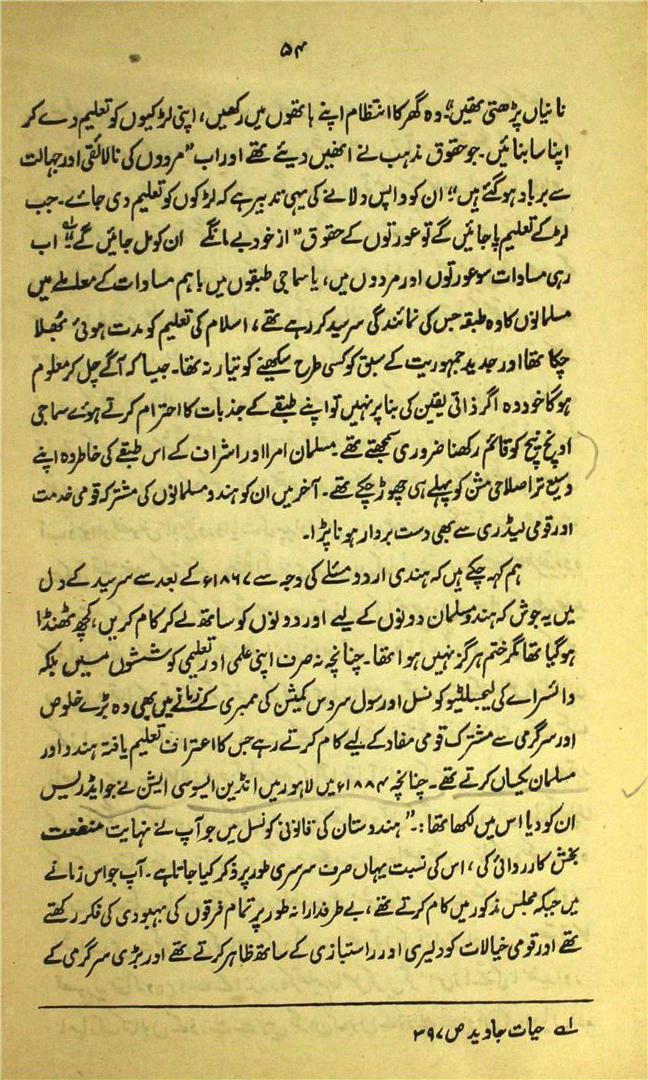 ۵۴
نانیاں پڑھتی تھیں"۔ وہ گھر کا انتظام اپنے ہاتھوں میں رکھیں، اپنی لڑکیوں کو تعلیم دے کر
اپنا سا بنائیں۔ جو حقوق مذہب نے انھیں دیئے تھے اور اب "مردوں کی نالائقی اور جہالت
سے برباد ہو گئے ہیں"، ان کو واپس دلانے کی یہی تدبیر ہے کہ لڑکوں کو تعلیم دی جائے۔ جب
لڑکے تعلیم پا جائیں گے تو عورتوں کے حقوق "از خود بے مانگے ان کو مل جائیں گے"۔ لہ اب
رہی مساوات سو عورتوں اور مردوں میں، یا سماجی طبقوں میں باہم مساوات کے معاملے میں
مسلمانوں کا وہ طبقہ جس کی نمائندگی سرسید کر رہے تھے، اسلام کی تعلیم کو مدت ہوئی بھلا
چکا تھا اور جدید جمہوریت کے سبق کو کسی طرح سیکھنے کو تیار نہ تھا۔ جیسا کہ آگے چل کر معلوم
ہوگا خود وہ اگر ذاتی یقین کی بنا پر نہیں تو اپنے طبقے کے جذبات کا احترام کرتے ہوئے سماجی
اونچ نیچ کو قائم رکھنا ضروری سمجھتے تھے۔ مسلمان امرا اور اشراف کے اس طبقے کی خاطر وہ اپنے
وسیع تر اصلاحی مشن کو پہلے ہی چھوڑ چکے تھے۔ آخر میں ان کو ہندو مسلمانوں کی مشترکہ قومی خدمت
اور قومی لیڈری سے بھی دست بردار ہونا پڑا۔
ہم کہہ چکے ہیں کہ ہندی اردو مسئلے کی وجہ سے ۱۸۶۷ء کے بعد سے سرسید کے دل
میں یہ جوش کہ ہندو مسلمان دونوں کے لیے اور دونوں کو ساتھ لے کر کام کریں، کچھ ٹھنڈا
ہو گیا تھا مگر ختم ہرگز نہیں ہوا تھا۔ چنانچہ نہ صرف اپنی علمی اور تعلیمی کوششوں میں بلکہ
وائسراے کی لیجسلیٹیو کونسل اور سول سروس کمیشن کی ممبری کے زمانے میں بھی وہ بڑے خلوص
اور سرگرمی سے مشترک قومی مفاد کے لیے کام کرتے رہے جس کا اعتراف تعلیم یافتہ ہندو اور
مسلمان یکساں کرتے تھے۔ چنانچہ ۱۸۸۴ء میں لاہور میں انڈین الیسوسی ایشن نے جو ایڈریس
ان کو دیا اس میں لکھا تھا:۔ "ہندوستان کی قانونی کونسل میں جو آپ نے نہایت منفعت
بخش کارروائی کی، اس کی نسبت یہاں صرف سرسری طور پر ذکر کیا جاتا ہے۔ آپ جو اس زمانے
میں جبکہ مجلس مذکور میں کام کرتے تھے، بے طرفدارانہ طور پر تمام فرقوں کی بہبودی کی فکر رکھتے
تھے اور قومی خیالات کو دلیری اور راستبازی کے ساتھ ظاہر کرتے تھے اور بڑی سرگرمی کے
لہ حیات جاوید ص ۳۹۷